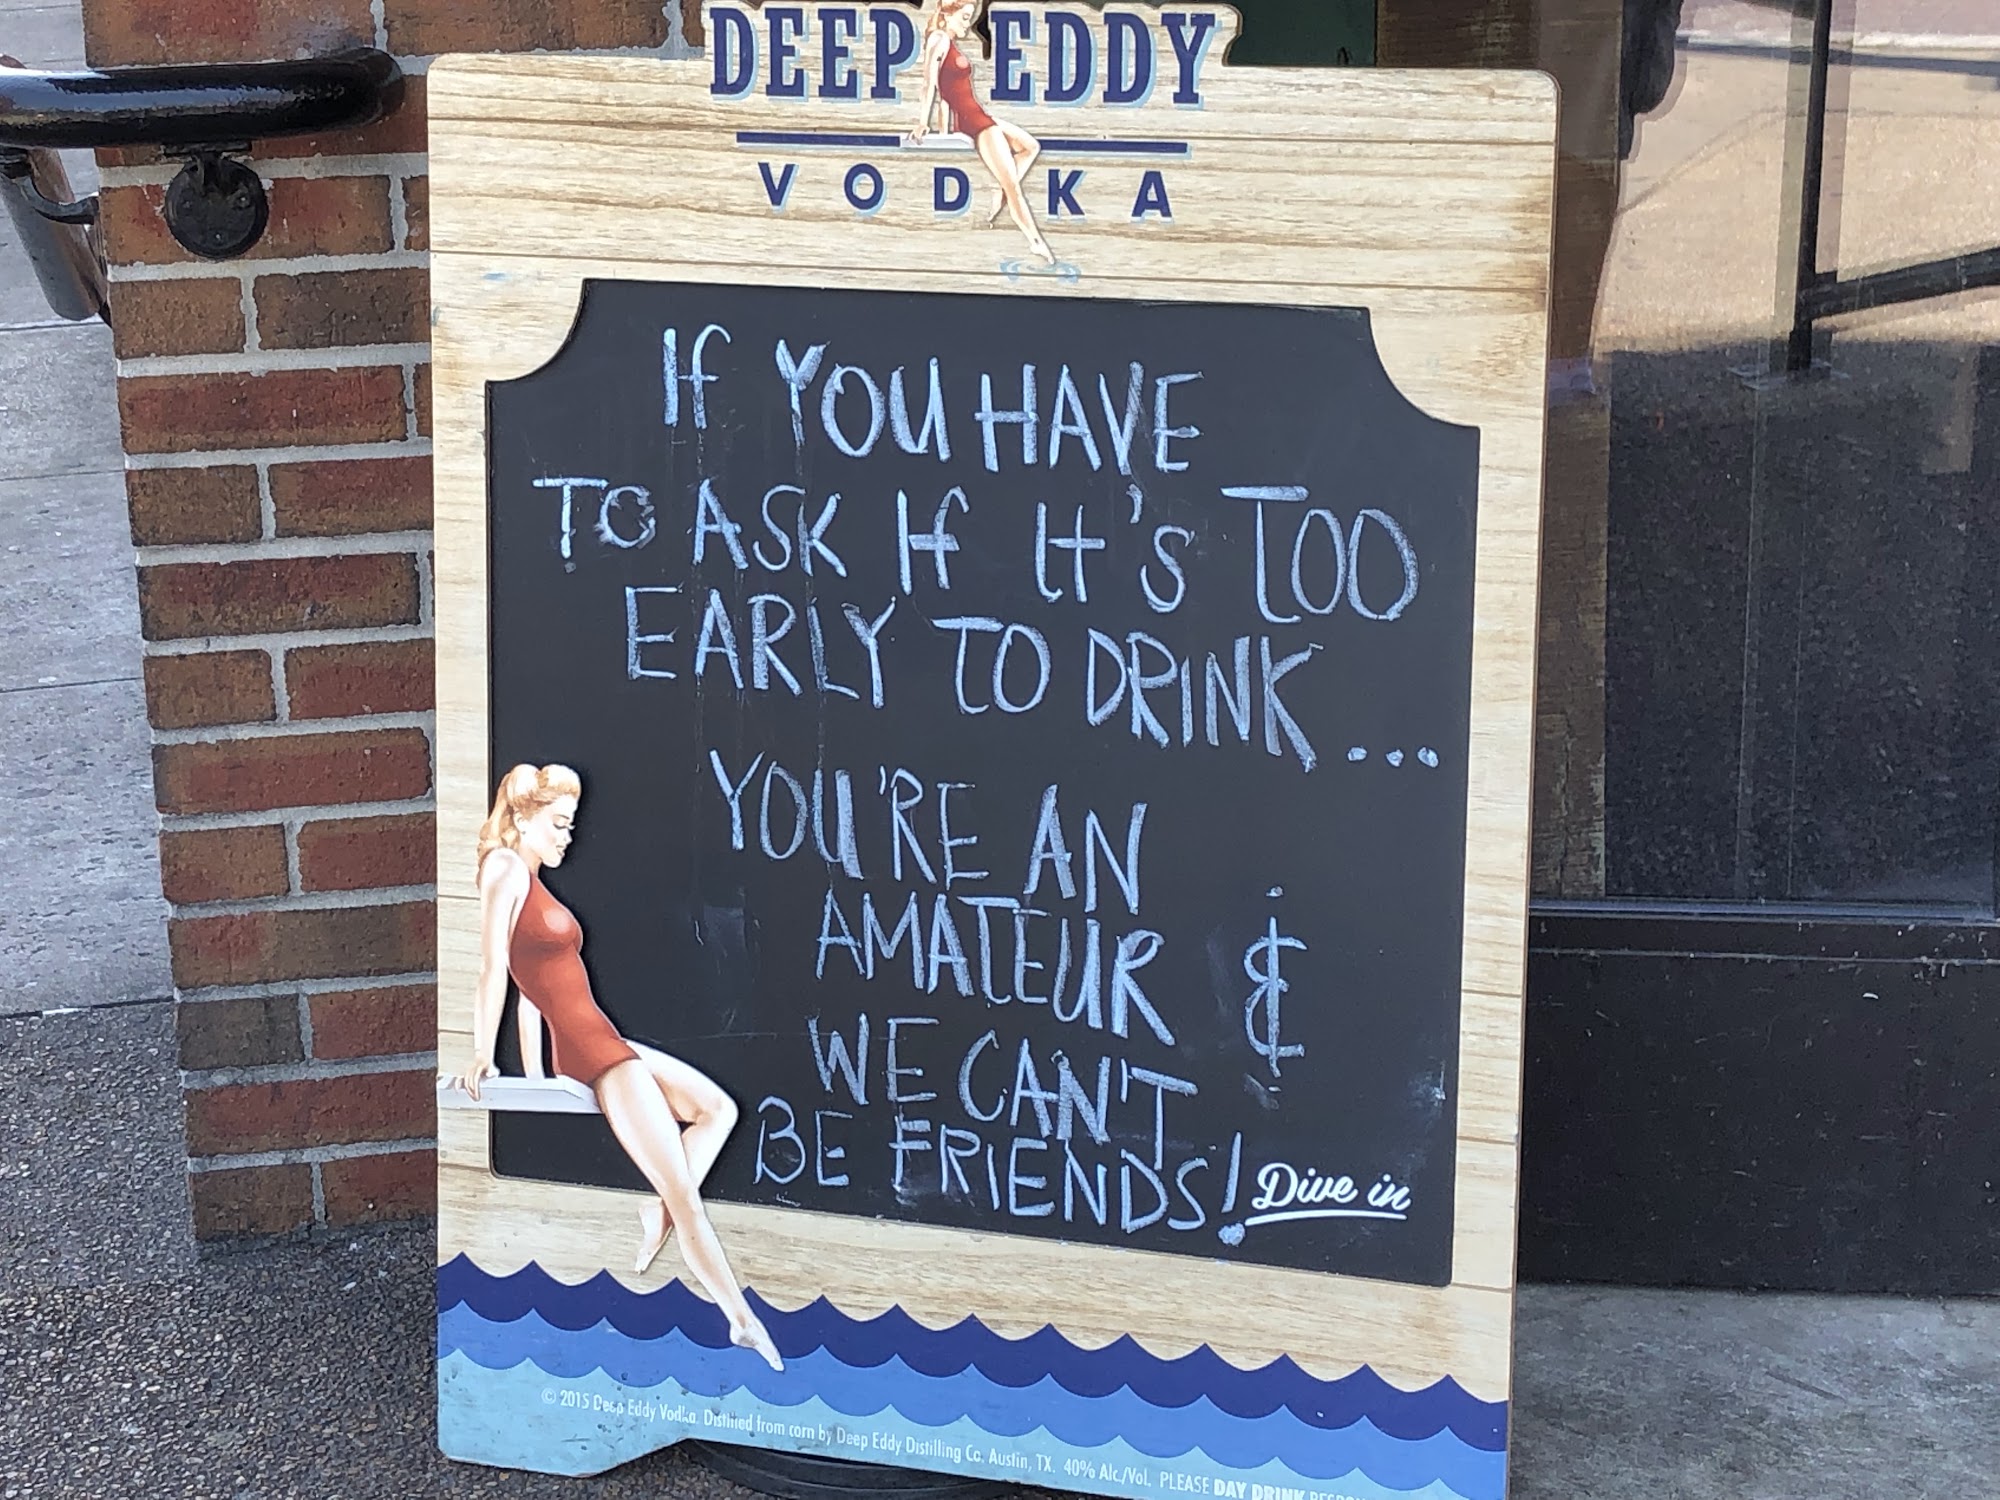 DEEP EDDY
VODKA
If YOU HAVE
TO ASK If It's TOO
EARLY TO DRINK...
YOU'RE AN
AMATEUR &
WE CAN'T
BE FRIENDS!
Dive in
© 2015 Deep Eddy Vodka. Distilled from corn by Deep Eddy Distilling Co. Austin, TX. 40% Alc./Vol. PLEASE DAY DRINK